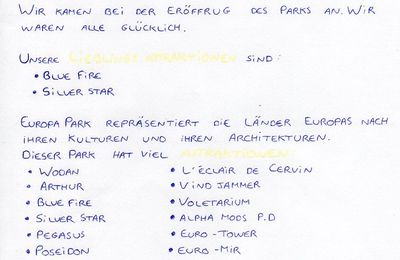 WIR KAMEN BEI DER ERÖFFRUG DES PARKS AN. WIR
WAREN ALLE GLÜCKLICH.
UNSERE LIEBLINGS ATTRAKTIONEN SIND:
• BLUE FIRE
• SILVER STAR
EUROPA PARK REPRÄSENTIERT DIE LÄNDER EUROPAS NACH
IHREN KULTUREN UND IHREN ARCHITEKTUREN.
DIESER PARK HAT VIEL ATTRAKTIONEN:
• WODAN
• ARTHUR
• BLUE FIRE
• SILVER STAR
• PEGASUS
• POSEIDON
• L'ÉCLAIR DE CERVIN
• VINDJAMMER
• VOLETARIUM
• ALPHA MODS P.D
• EURO-TOWER
• EURO-MIR